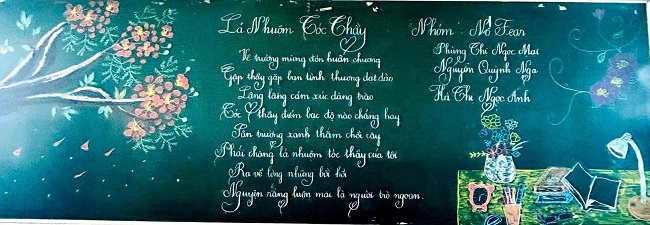 Lá Nhuộm Tóc Thầy
Về trường mừng đón huân chương
Gặp thầy gặp bạn tình thương dạt dào
Lâng lâng cảm xúc dâng trào
Tóc thầy điểm bạc độ nào chẳng hay
Sân trường xanh thắm chồi cây
Phải chăng lá nhuộm tóc thầy của tôi
Ra về lòng những bồi hồi
Nguyện rằng luôn mãi là người trò ngoan.
Nhóm: No Fear
Phùng Thị Ngọc Mai
Nguyễn Quỳnh Nga
Hà Thị Ngọc Anh